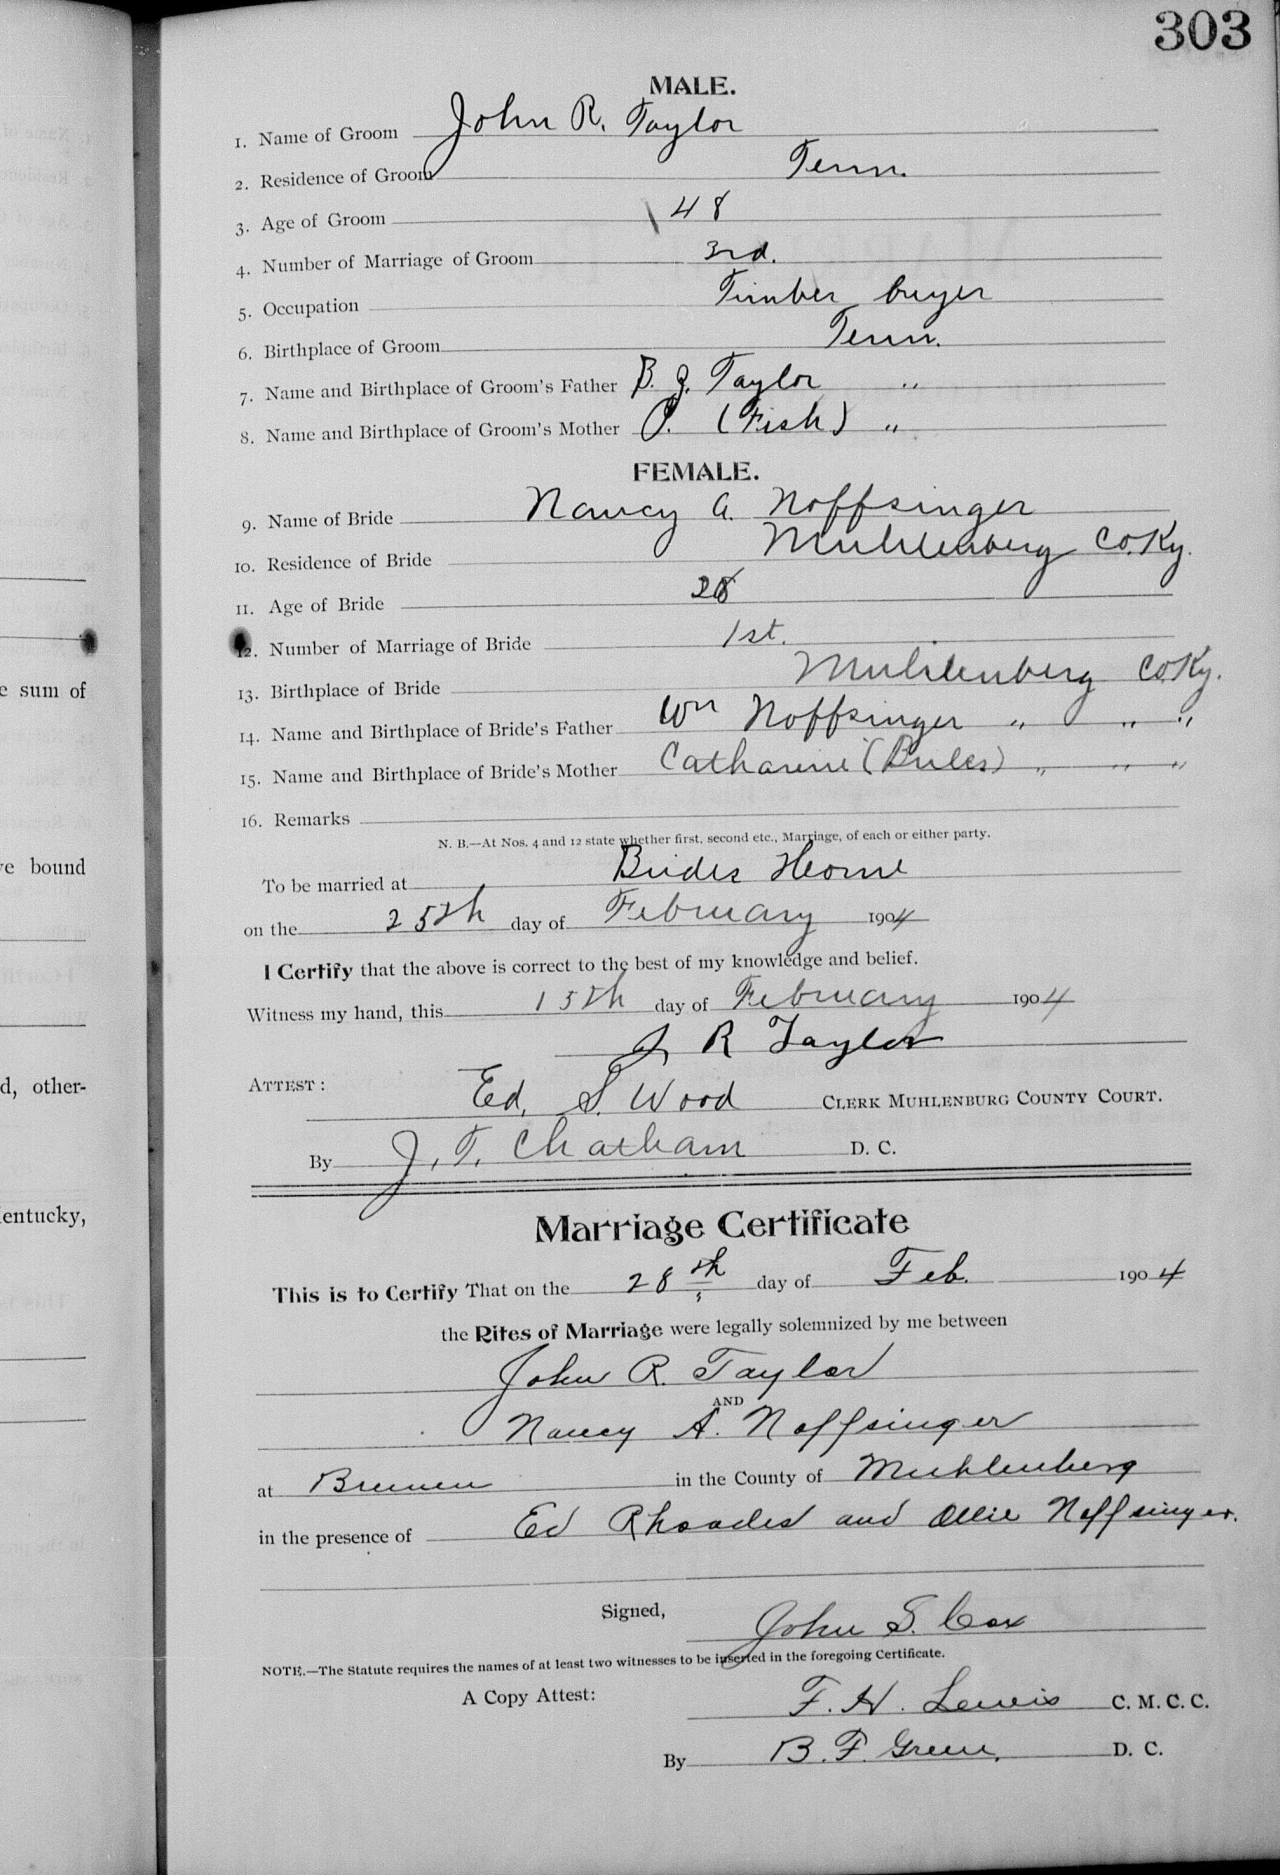 303
MALE.
1. Name of Groom John R. Taylor
2. Residence of Groom Tenn.
3. Age of Groom 48
4. Number of Marriage of Groom 3rd.
5. Occupation Timber buyer
6. Birthplace of Groom Tenn.
7. Name and Birthplace of Groom's Father B. J. Taylor "
8. Name and Birthplace of Groom's Mother (Fish) "
FEMALE.
9. Name of Bride Nancy A. Noffsinger
10. Residence of Bride Muhlenberg Co. Ky.
11. Age of Bride 28
12. Number of Marriage of Bride 1st.
13. Birthplace of Bride Muhlenberg Co. Ky.
14. Name and Birthplace of Bride's Father Wm Noffsinger " " "
15. Name and Birthplace of Bride's Mother Catharine " " "
16. Remarks
N. B.—At Nos. 4 and 12 state whether first, second etc., Marriage, of each or either party.
To be married at Brides Home
on the 25th day of February 1904
I Certify that the above is correct to the best of my knowledge and belief.
Witness my hand, this 15th day of February 1904
J R Taylor
ATTEST: Ed. S. Wood CLERK MUHLENBURG COUNTY COURT.
By J. T. Chatham D. C.
Marriage Certificate
This is to Certify That on the 28th day of Feb. 1904
the Rites of Marriage were legally solemnized by me between
John R. Taylor
AND
Nancy A. Noffsinger
at Bremen in the County of Muhlenberg
in the presence of Ed Rhoades and Ollie Noffsinger.
Signed, John S. Cox
NOTE.—The Statute requires the names of at least two witnesses to be inserted in the foregoing Certificate.
A Copy Attest: F. H. Lewis C. M. C. C.
By B. F. Green. D. C.
e sum of
e bound
d, other-
entucky,